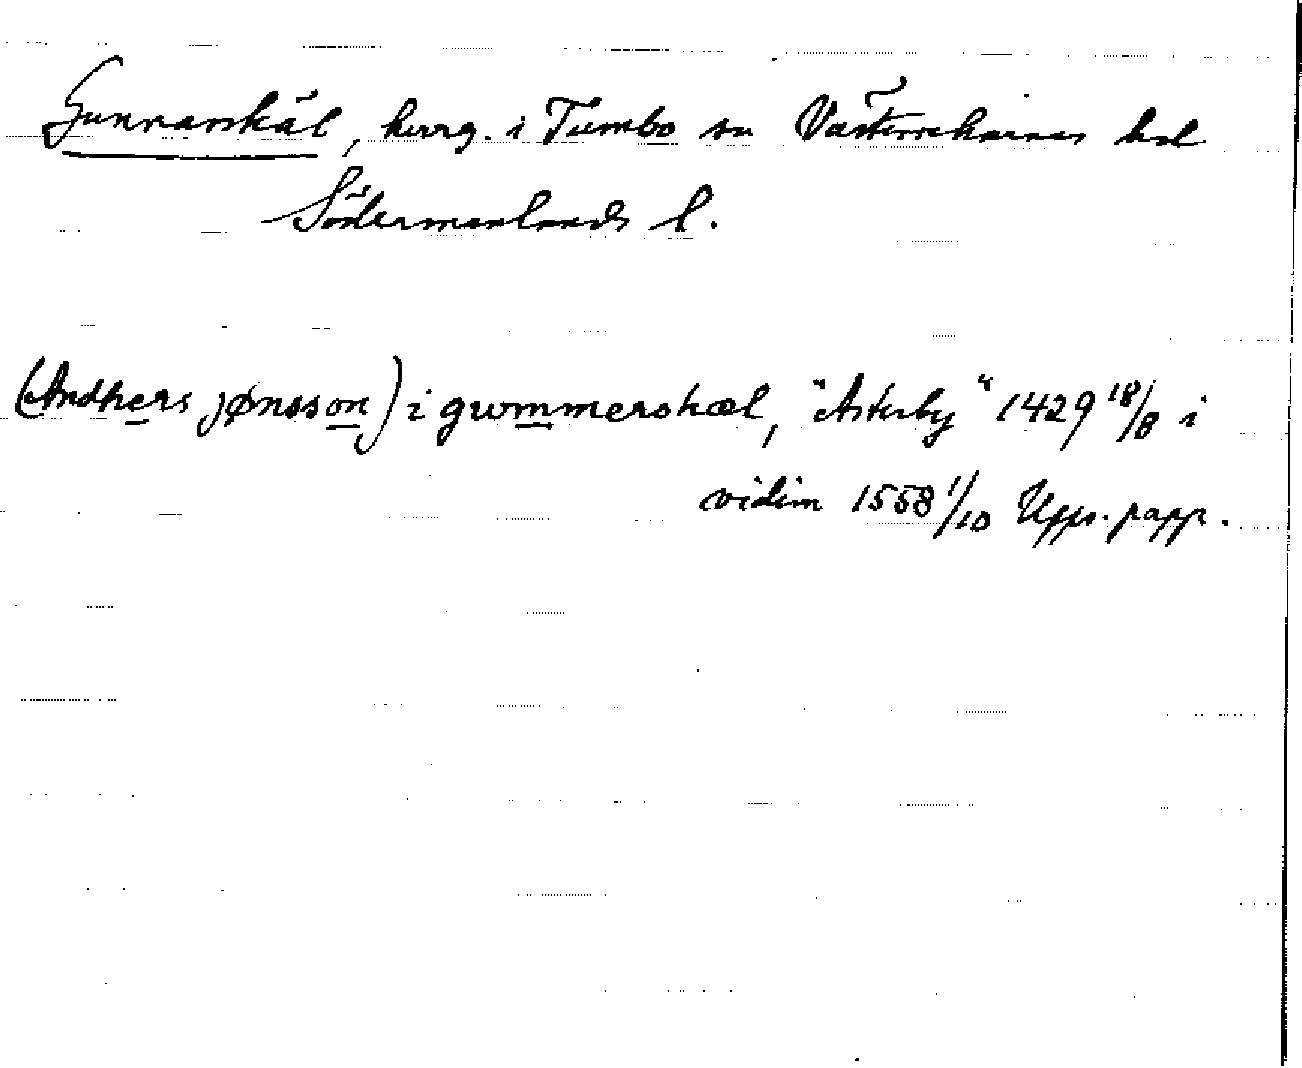 Gunnarskäl, herrg. i Tumbo sn Västerrekarnes hd
Södermanlands l.
(Andhers jønsson) i gwmmerskæl, "Asterby" 1429 18/8 i
vidim 1558 1/10 Upps. papp.